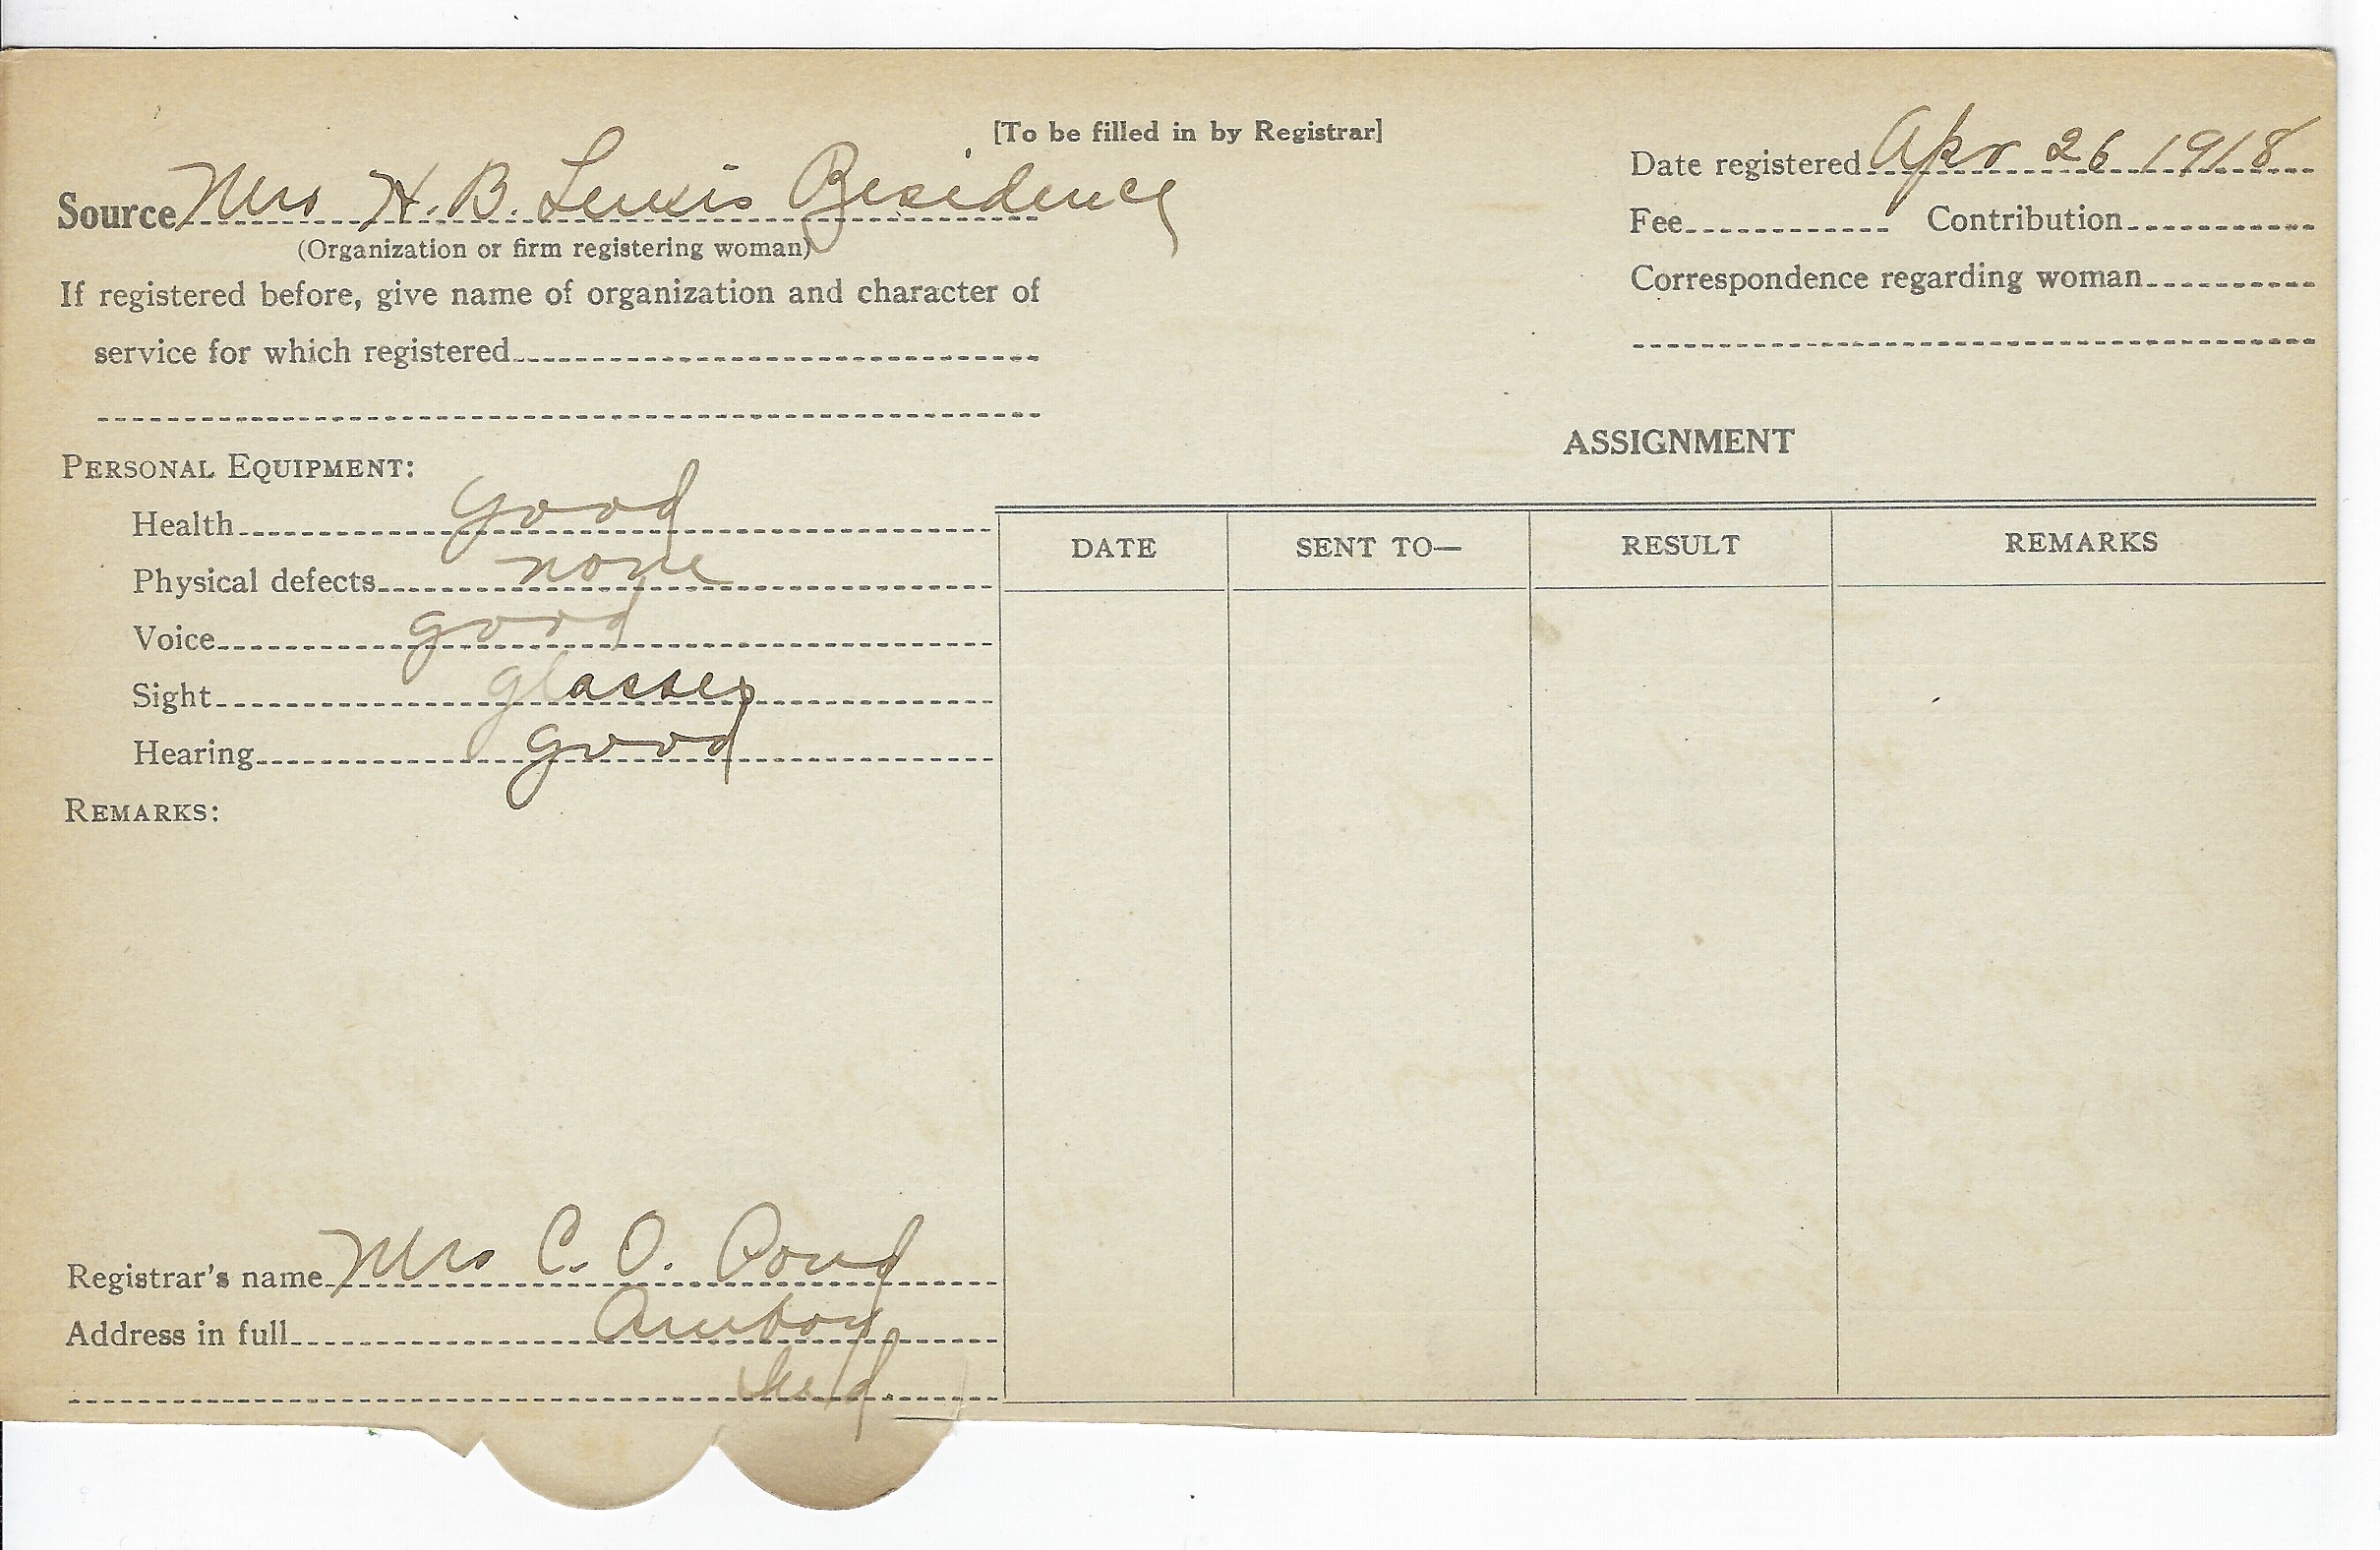 [To be filled in by Registrar]
Source Mrs H. B. Lewis Residence
(Organization or firm registering woman)
If registered before, give name of organization and character of
service for which registered
Date registered Apr 26 1918
Fee Contribution
Correspondence regarding woman
PERSONAL EQUIPMENT:
Health good
Physical defects none
Voice good
Sight glasses
Hearing good
REMARKS:
Registrar's name Mrs C. O. Pond
Address in full Amboy
Ind.
ASSIGNMENT
DATE SENT TO— RESULT REMARKS